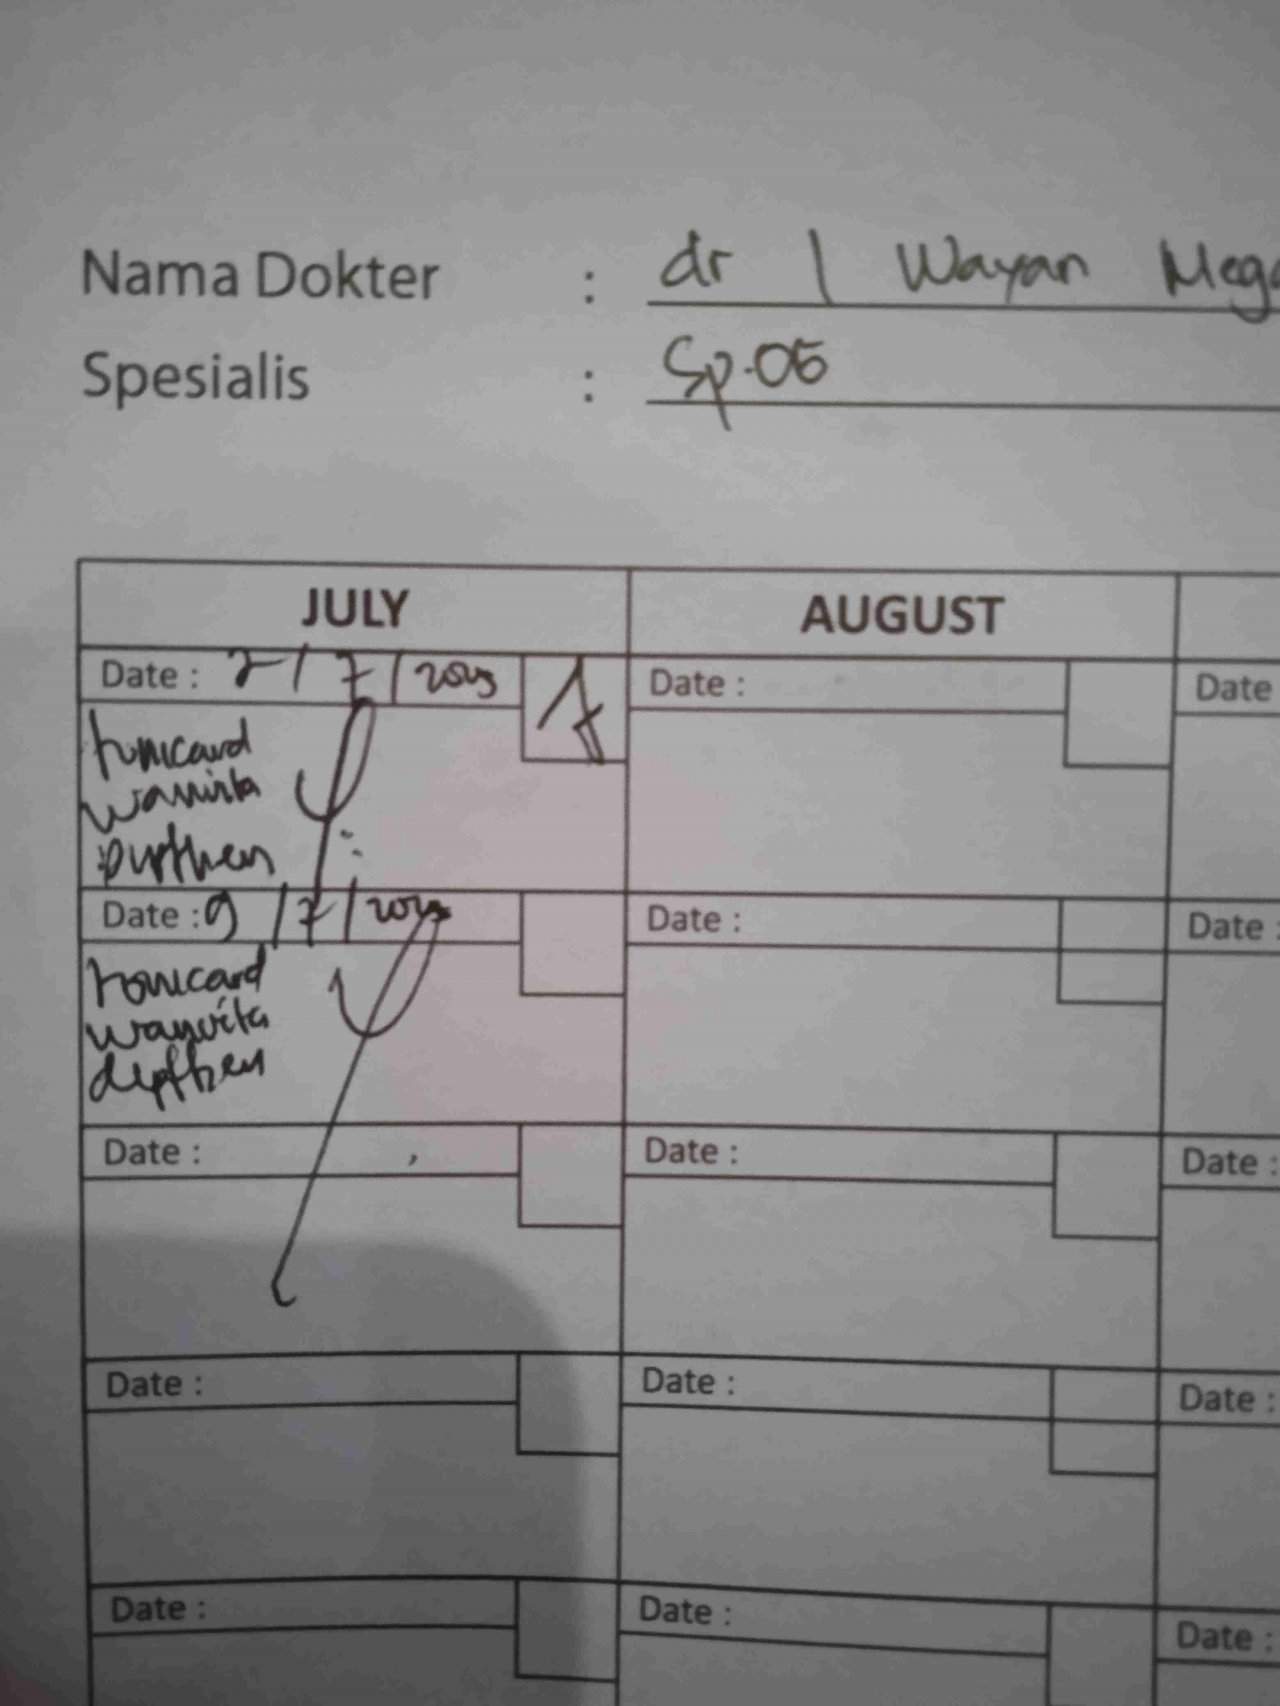 Nama Dokter : dr I Wayan Mega
Spesialis : Sp.OG
JULY AUGUST
Date : 2/7/2025 Date : Date
tonicard
wanvita
Date : 9/7/2025 Date : Date :
tonicard
wanvita
Date : Date : Date :
Date : Date : Date :
Date : Date : Date :